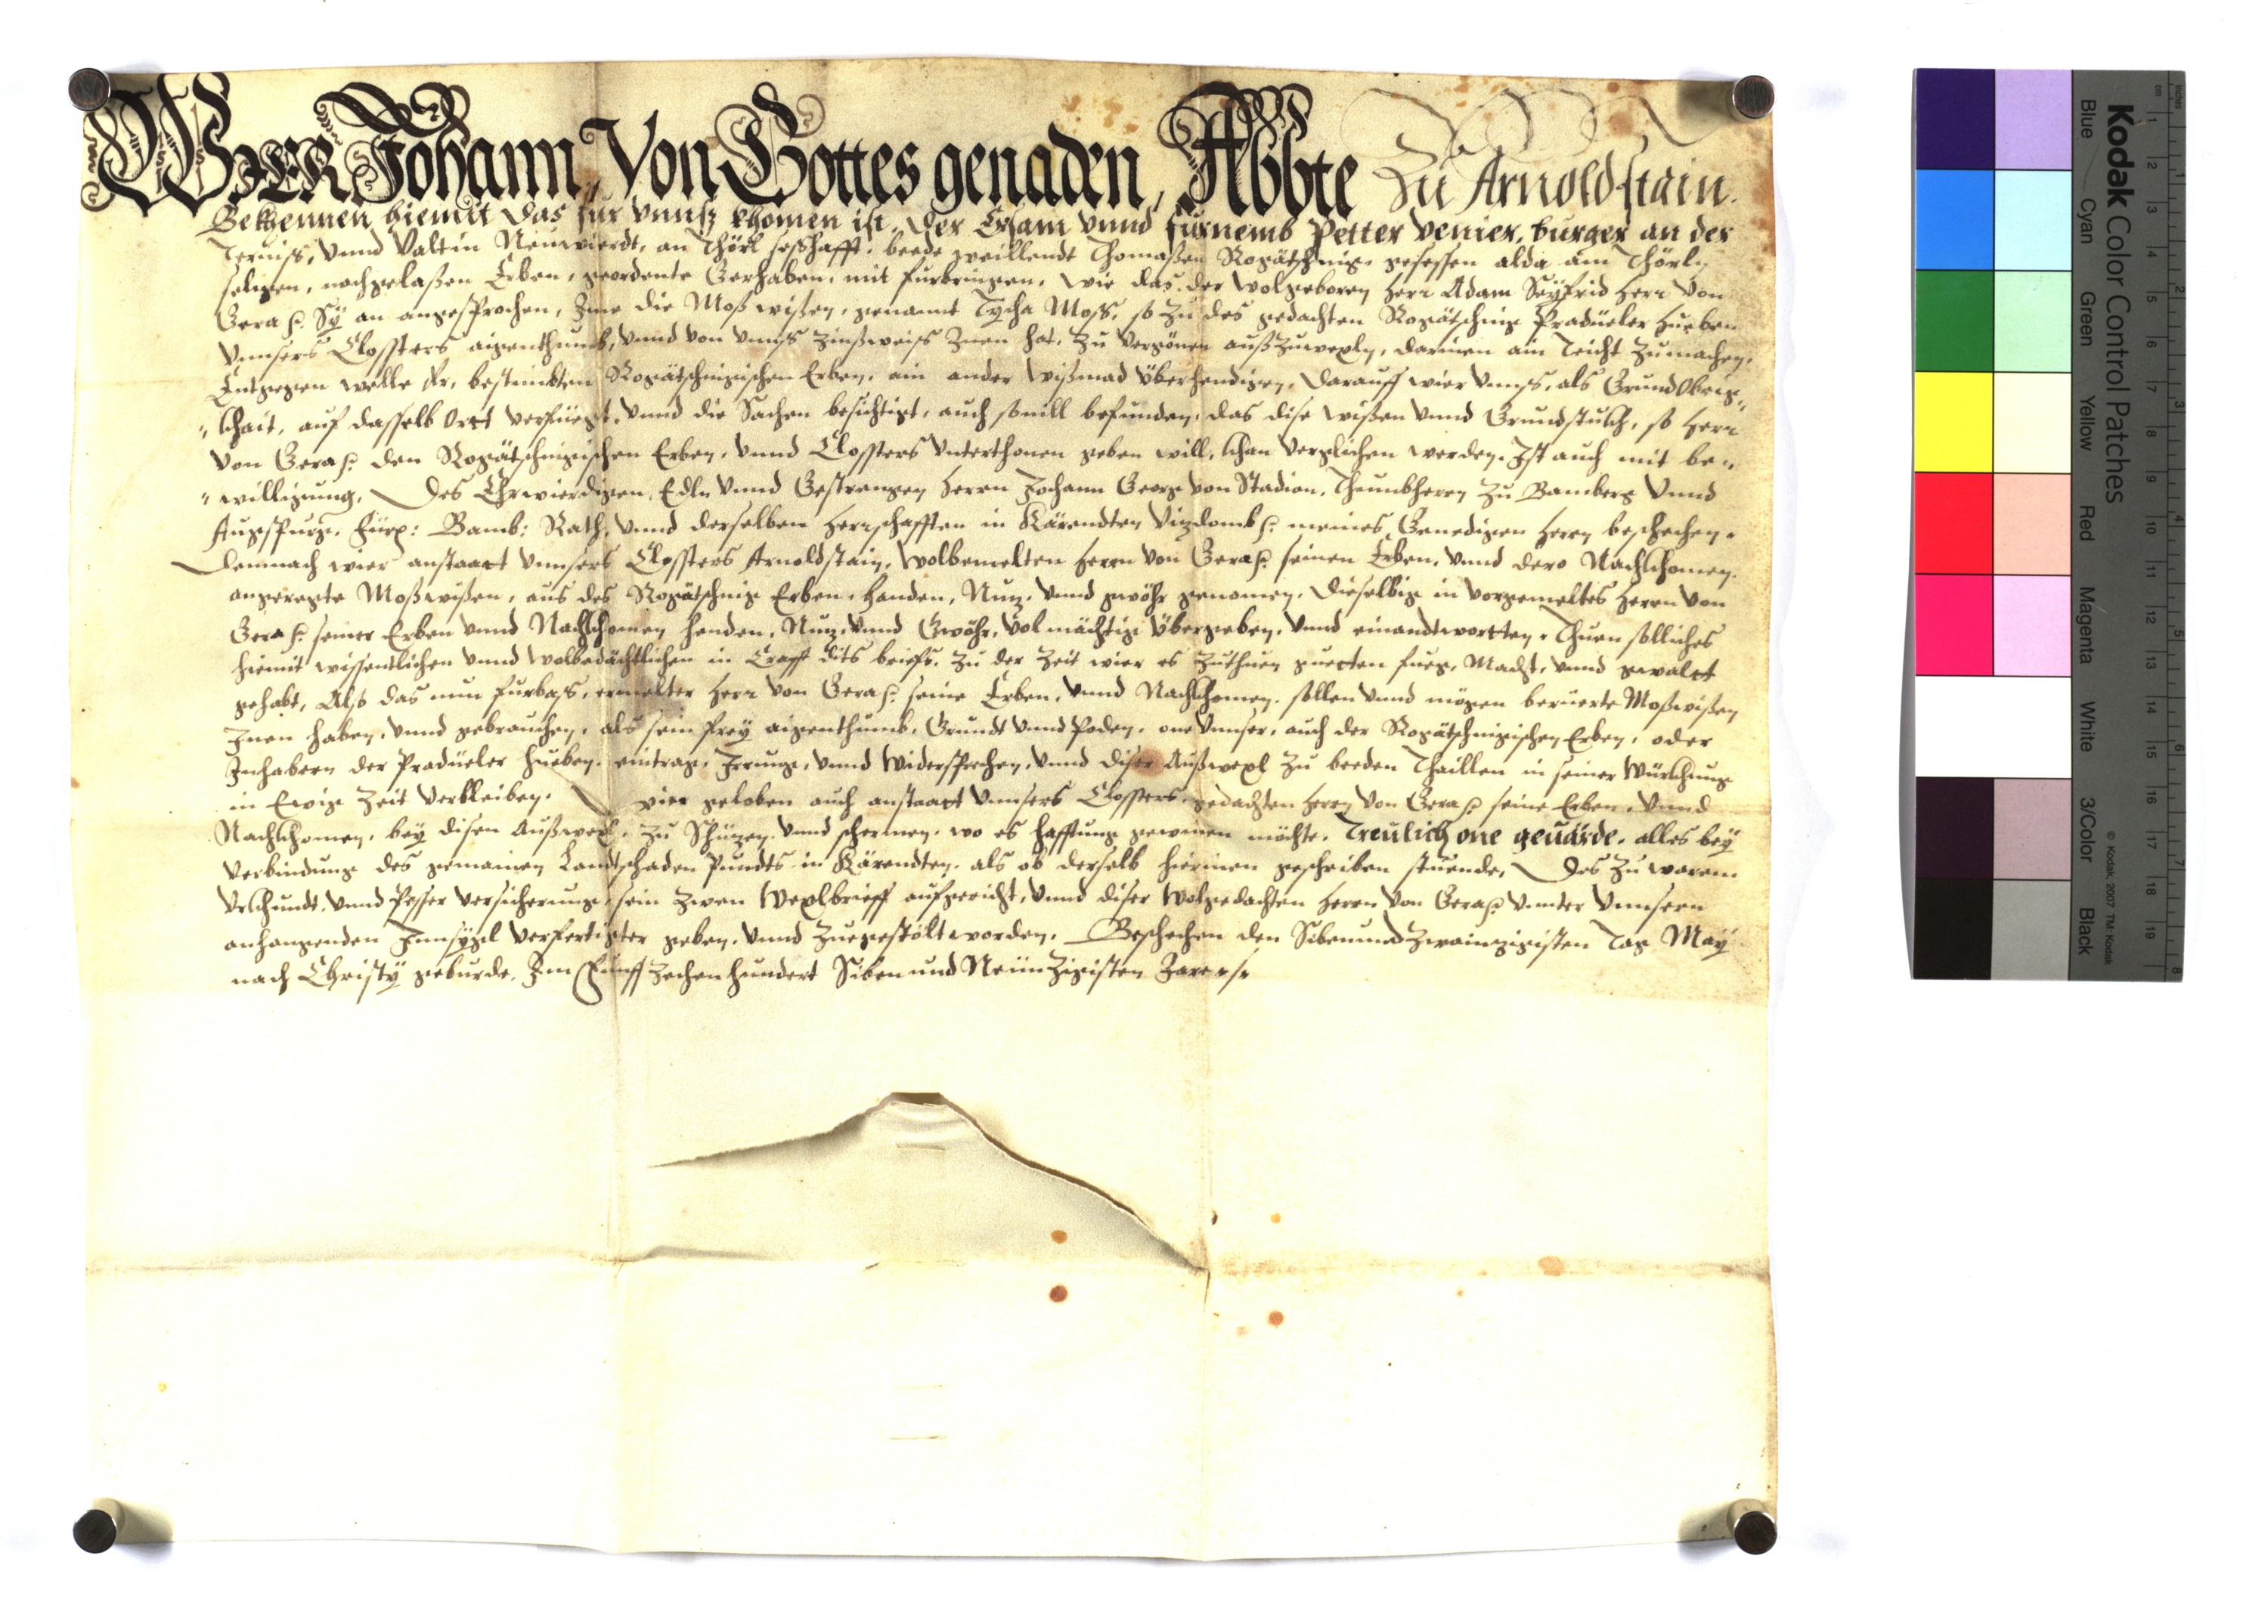 WIER Johann, Von Gottes genaden, Abbte Zu Arnoldstain.
Bekhennen hiemit das für vnnß khomen ist, der Ersam vnnd fürnemb Petter Venier, burger an der
Terviß, vnnd Valtin Neuwierdt, an Thörl seßhafft, beede weillendt Thomaßen Rogätschnig, gesessen alda am Thörl,
seligen, nachgelaßen Erben, geordente Gerhaben, mit furbringen, wie das der Wolgeboren Herr Adam Seyfrid Herr von
Geraß: Sy an angesprochen, Ime die Moß wißen, genant Tycha Moß, so zu des gedachten Rogätschnig Pradüeler Hueben
vnnsers Clossters aigenthumb, vnnd von vnnß zinßweiß Innen hat, zu vergönen auß zuwexln, darinen ain Teicht zumachen,
Entgegen welle Er, bestimbten Rogätschnigischen Erben, ain ander wißmad überhendigen, darauff wier vnnß, als Grundobrig„
„khait, auf dasselb Ortt verfüegt, vnnd die Sachen besichtigt, auch souill befunden, das dise wißen vnnd Grundstukh, so Herr
von Geraß: den Rogätschnigischen Erben, vnnd Clossters Vnterthonen geben will, khan verglichen werden. Ist auch mit be„
„willigung, Des Ehrwierdigen, Edln vnnd Gestrengen Herrn Johann Georg von Stadion, Thumbherrn zu Bamberg vnnd
Augspurg, Fürs: Bamb: Rath, vnnd derselben Herrschafften in Kärendten Vizdomb ß: meines Genedigen Herrn beschechen.
Demnach wier anstaat vnnsers Clossters Arnoldstain, Wolbemelten Herrn von Geraß: seinen Erben, vnnd dero Nachkhomen,
angeregte Moßwißen, aus des Rogätschnig Erben, Handen, Nuz, vnnd gwöhr genomen, dieselbig in vorgemeltes Herrn von
Geraß: seiner Erben vnnd Nachkhomen Henden, Nuz, vnnd Gwöhr, volmächtig übergeben, vnnd einandtwortten. Thuen solliches
hiemit wissentlichen vnnd wolbedächtlichen in Crafft dits briefs, zu der Zeit wier es zuthuen guetten fueg, Macht, vnnd gwalt
gehabt, Also das nun furbaß, ermelter Herr von Geraß: seine Erben, vnnd Nachkhomen, sollen vnnd mögen berüerte Moßwißen
Innen haben, vnnd gebrauchen, als sein frey aigenthumb, Grundt vnnd Poden, one vnnser, auch der Rogätschnigischen Erben, oder
Inhabern der Pradüeler Hueben, eintrag, Irrung, vnnd Widersprechen, vnnd diser Außwexl zu beeden Thaillen in seiner Würkhung
in Ewig Zeit verbleiben. Wier geloben auch anstaat vnnsers Clossters, gedachten Herrn von Geraß: seine Erben, vnnd
Nachkhomen, bey disen Außwexl, zu Schüzen, vnnd schermen, wo es Hafftung gewinen möchte, Treulich one geuärde, alles bey
verbindung des gemainen Landtschaden Pundts in Kärendten, als ob derselb hierinen geschriben stuende, Des zu warem
vrkhundt, vnnd Pesser versicherung, sein zwen Wexlbrieff aufgericht, vnnd diser Wolgedachten Herrn von Geraß: vnnter vnnsern
anhangenden Innsygl verfertigter geben, vnnd zuegestölt worden. Beschechen den Sibenundzwainzigisten Tag May
nach Christy geburde, Im Fünffzechenhundert Siben und Neünzigisten Jare
Kodak Color Control Patches
Blue Cyan Green Yellow Red Magenta White 3/Color Black
© Kodak, 2007 TM: Kodak
inches 1 2 3 4 5 6 7 8
cm 1 2 3 4 5 6 7 8 9 10 11 12 13 14 15 16 17 18 19